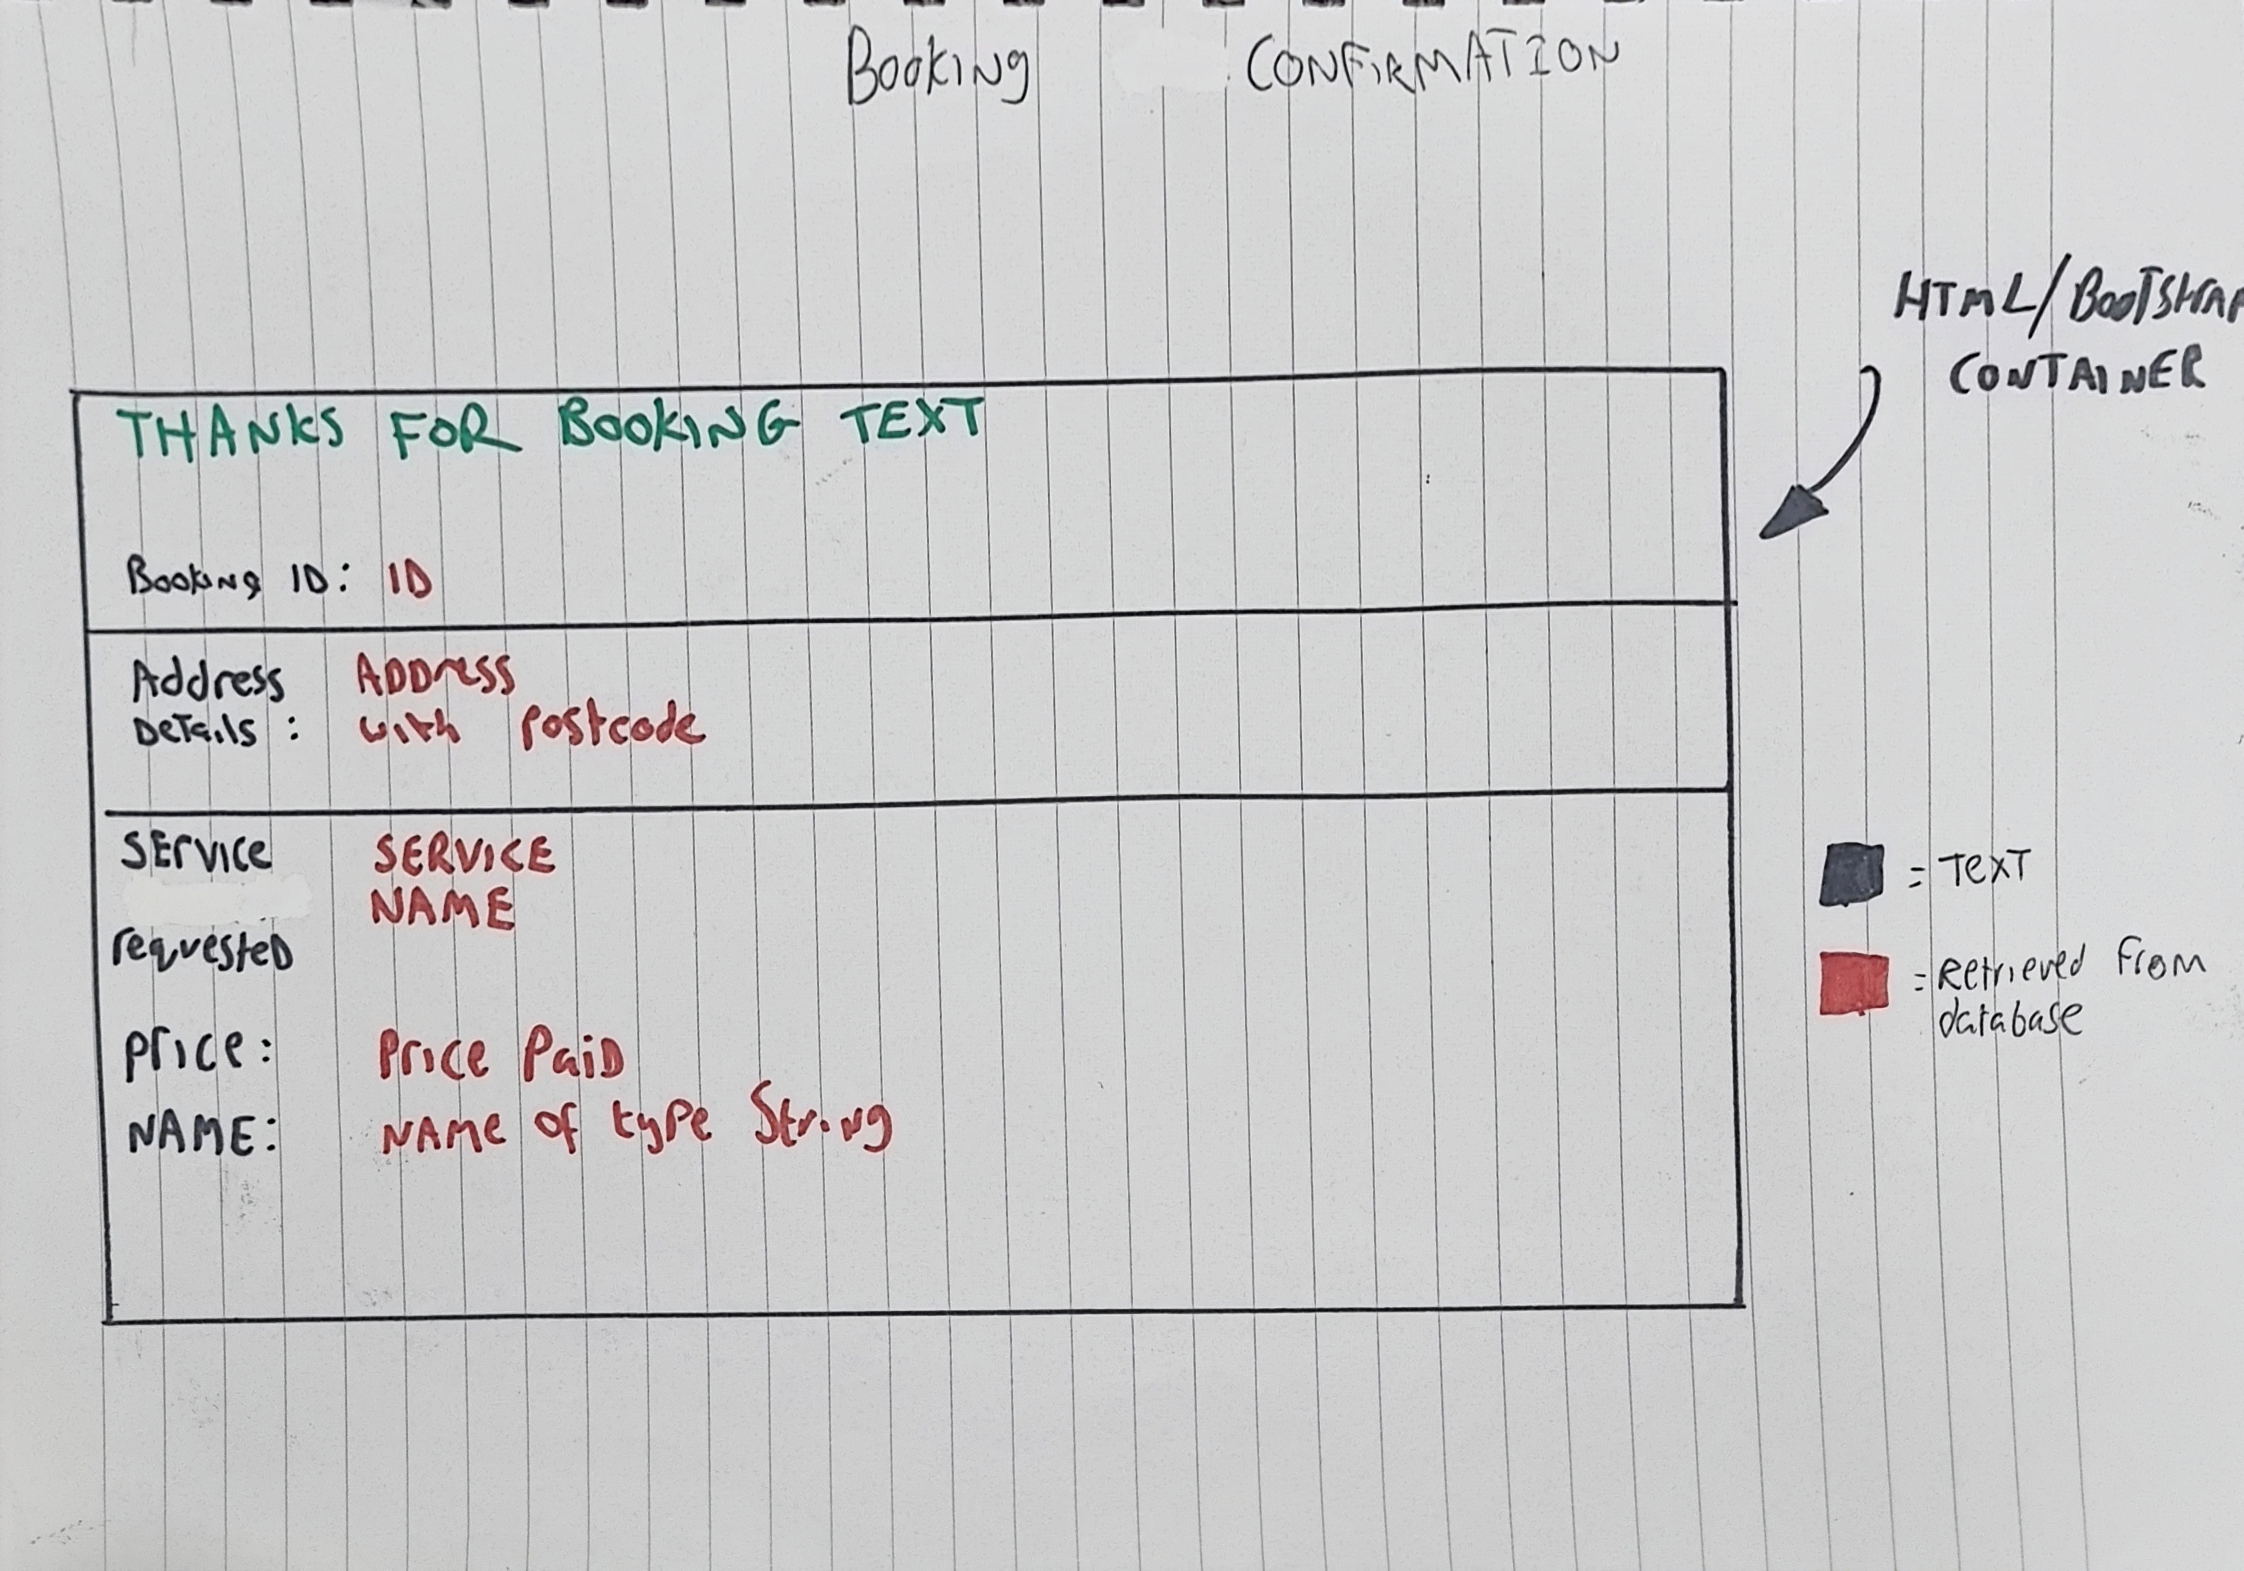 Booking CONFIRMATION
HTML/BOOTSTRAP
CONTAINER
THANKS FOR BOOKING TEXT
Booking ID: ID
Address ADDress
Details: with postcode
SErvice SERVICE
NAME
requesteD
Price: Price PaiD
NAME: NAMe of type String
= TexT
= Retrieved From
database